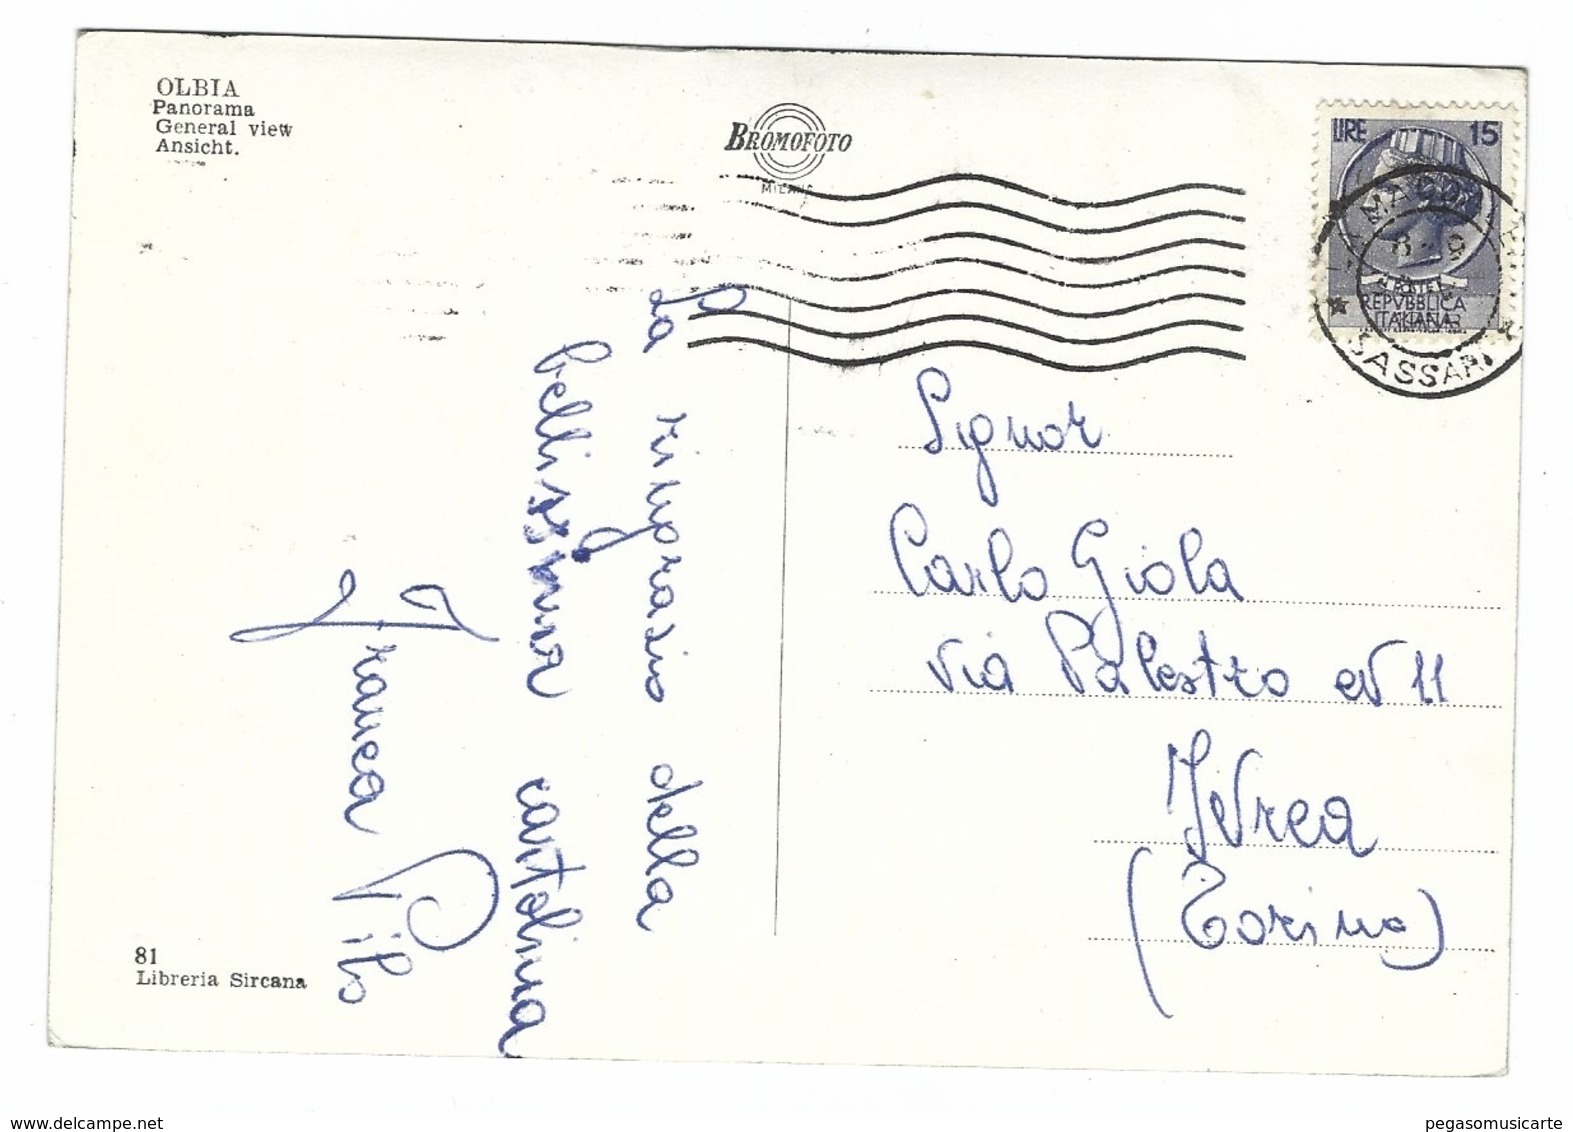 OLBIA
Panorama
General view
Ansicht.
BROMOFOTO
MILANO
LIRE 15
POSTE
REPVBBLICA
ITALIANA
SASSARI
La ringrazio della
bellissima cartolina
Franca Pilo
Signor
Carlo Giola
via Palestro N 11
IVrea
(Torino)
81
Libreria Sircana
www.delcampe.net
pegasomusicarte